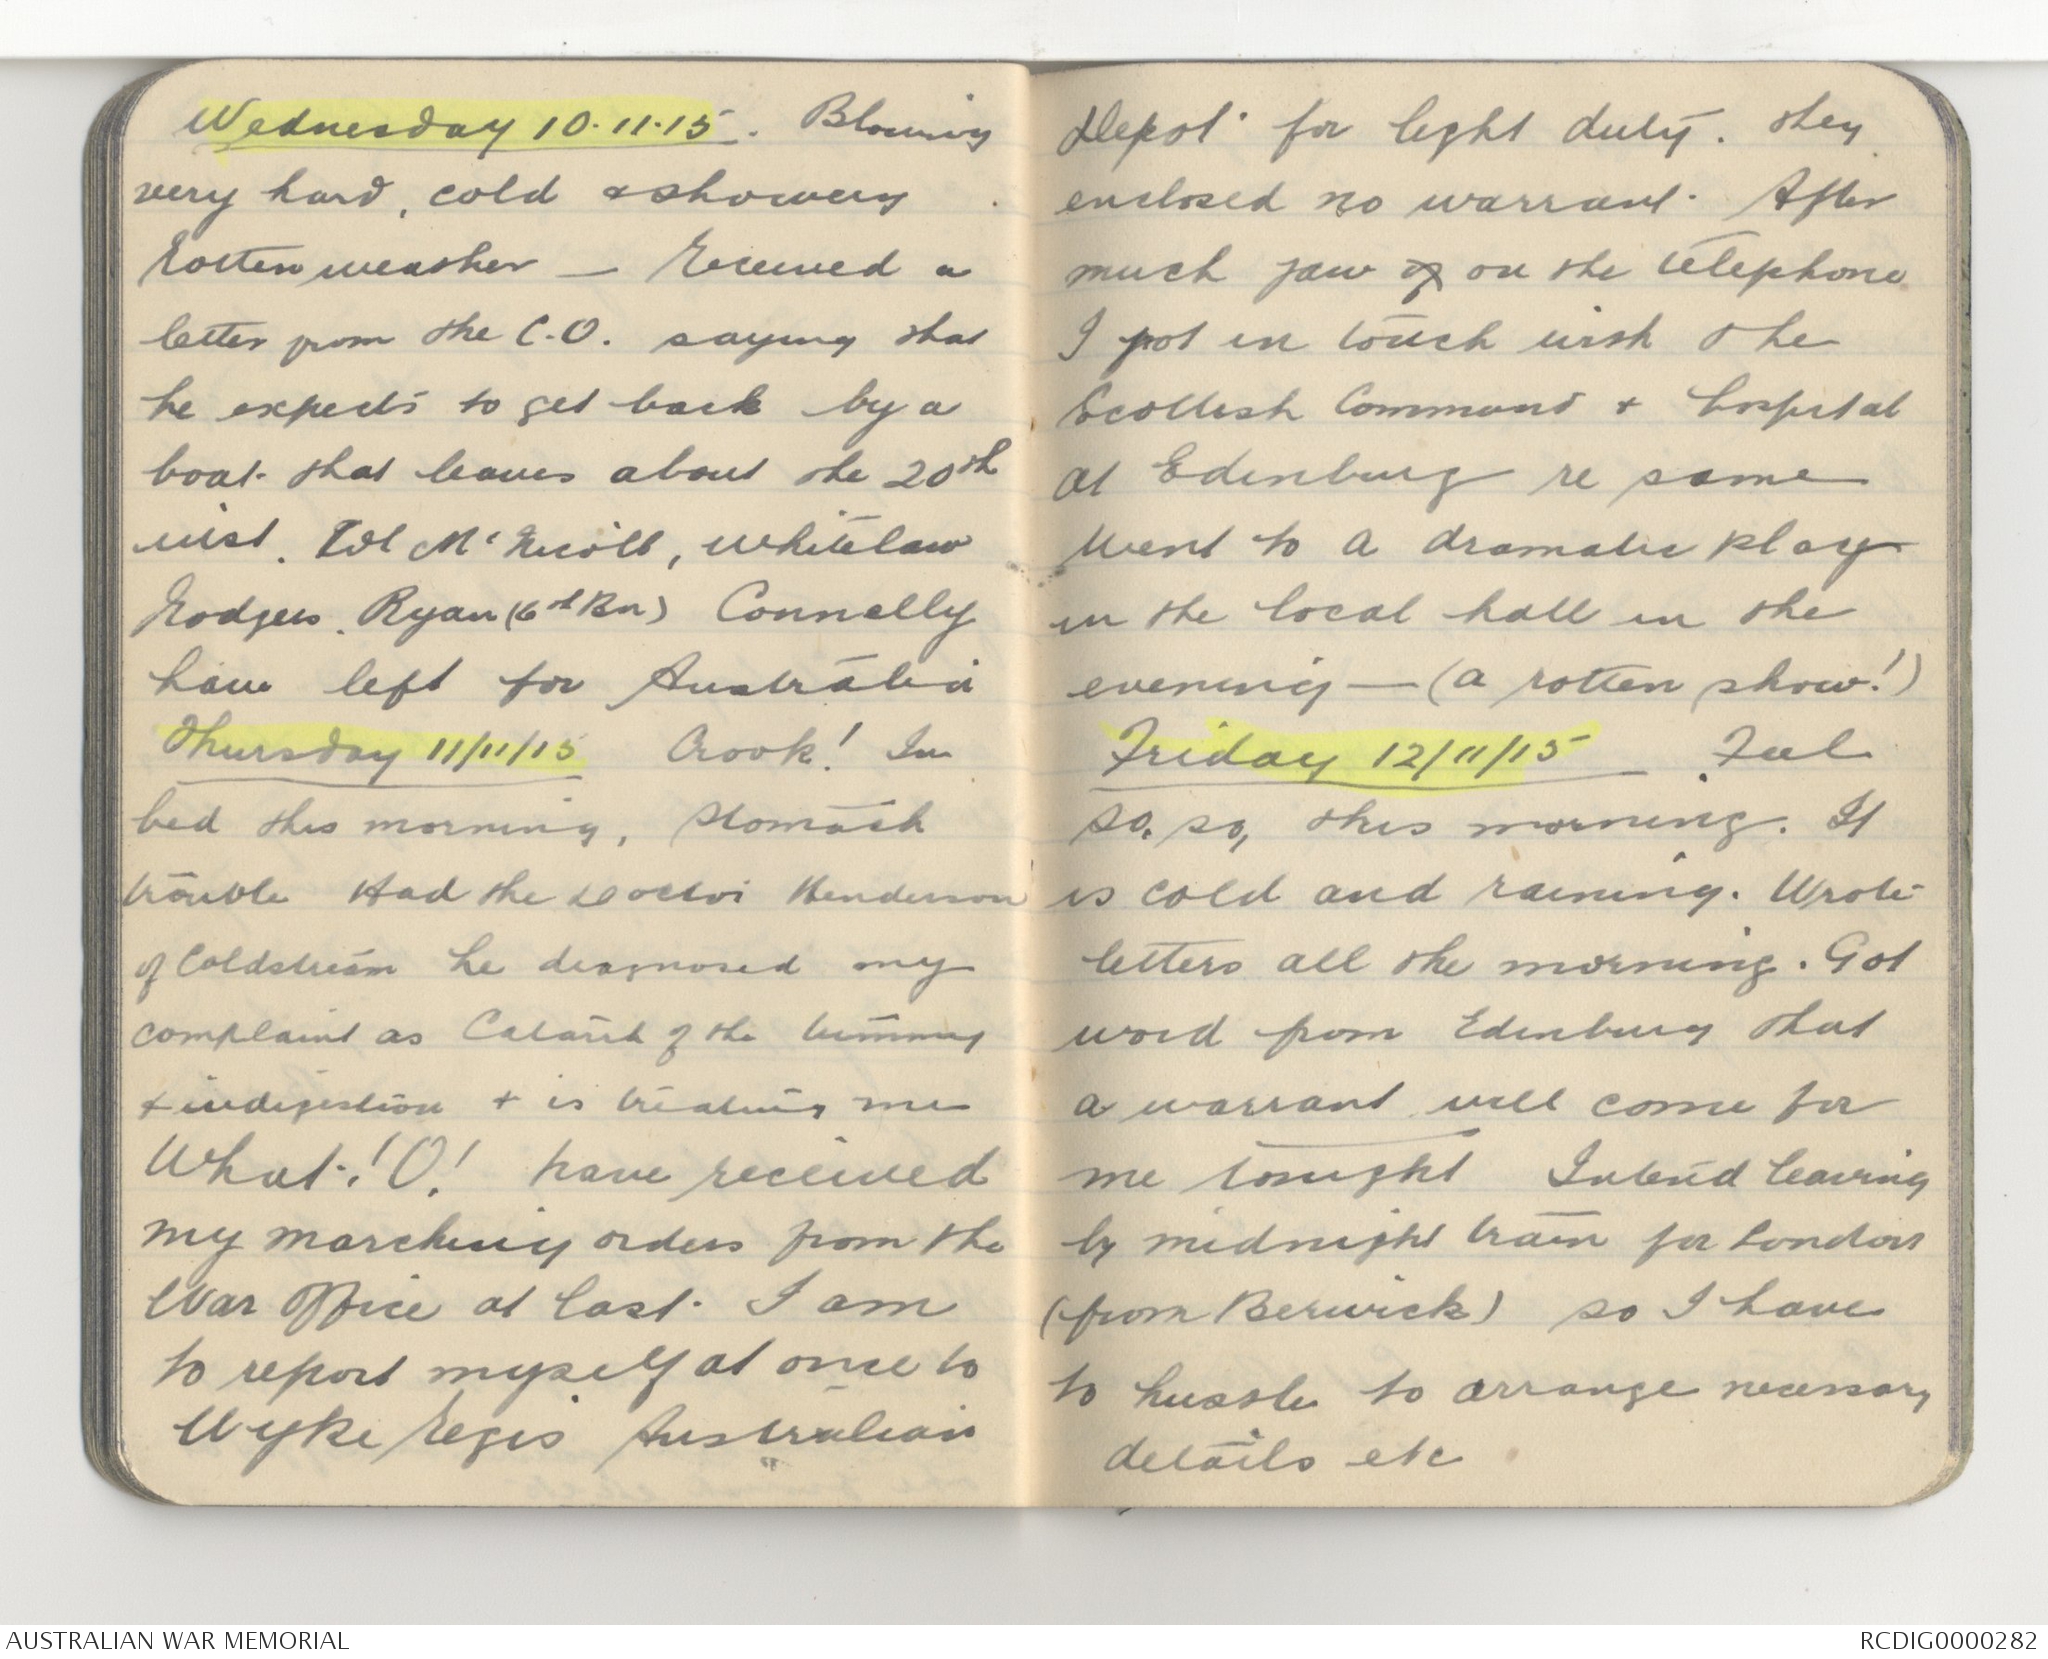 Wednesday 10.11.15. Blowing
very hard, cold & showery
Rotten weather — Received a
letter from the C.O. saying that
he expects to get back by a
boat that leaves about the 20th
inst. Col McNicoll, Whitelaw
Rodgers, Ryan (6th Bn) Connelly
have left for Australia
Thursday 11/11/15 Crook! In
bed this morning, stomach
trouble Had the Doctor Henderson
of Coldstream he diagnosed my
complaint as Catarrh of the tummy
& indigestion & is treating me
What.! O! have received
my marching orders from the
War Office at last. I am
to report myself at once to
Wyke Regis Australian
Depot for light duty. They
enclosed no warrant. After
much jaw on the telephone
I got in touch with the
Scottish Command & hospital
at Edinburg re same
Went to a dramatic play
in the local hall in the
evening — (a rotten show!)
Friday 12/11/15 Feel
so, so, this morning. It
is cold and raining. Wrote
letters all the morning. Got
word from Edinburg that
a warrant will come for
me tonight Intend leaving
by midnight train for London
(from Berwick) so I have
to hustle to arrange necessary
details etc
AUSTRALIAN WAR MEMORIAL
RCDIG0000282